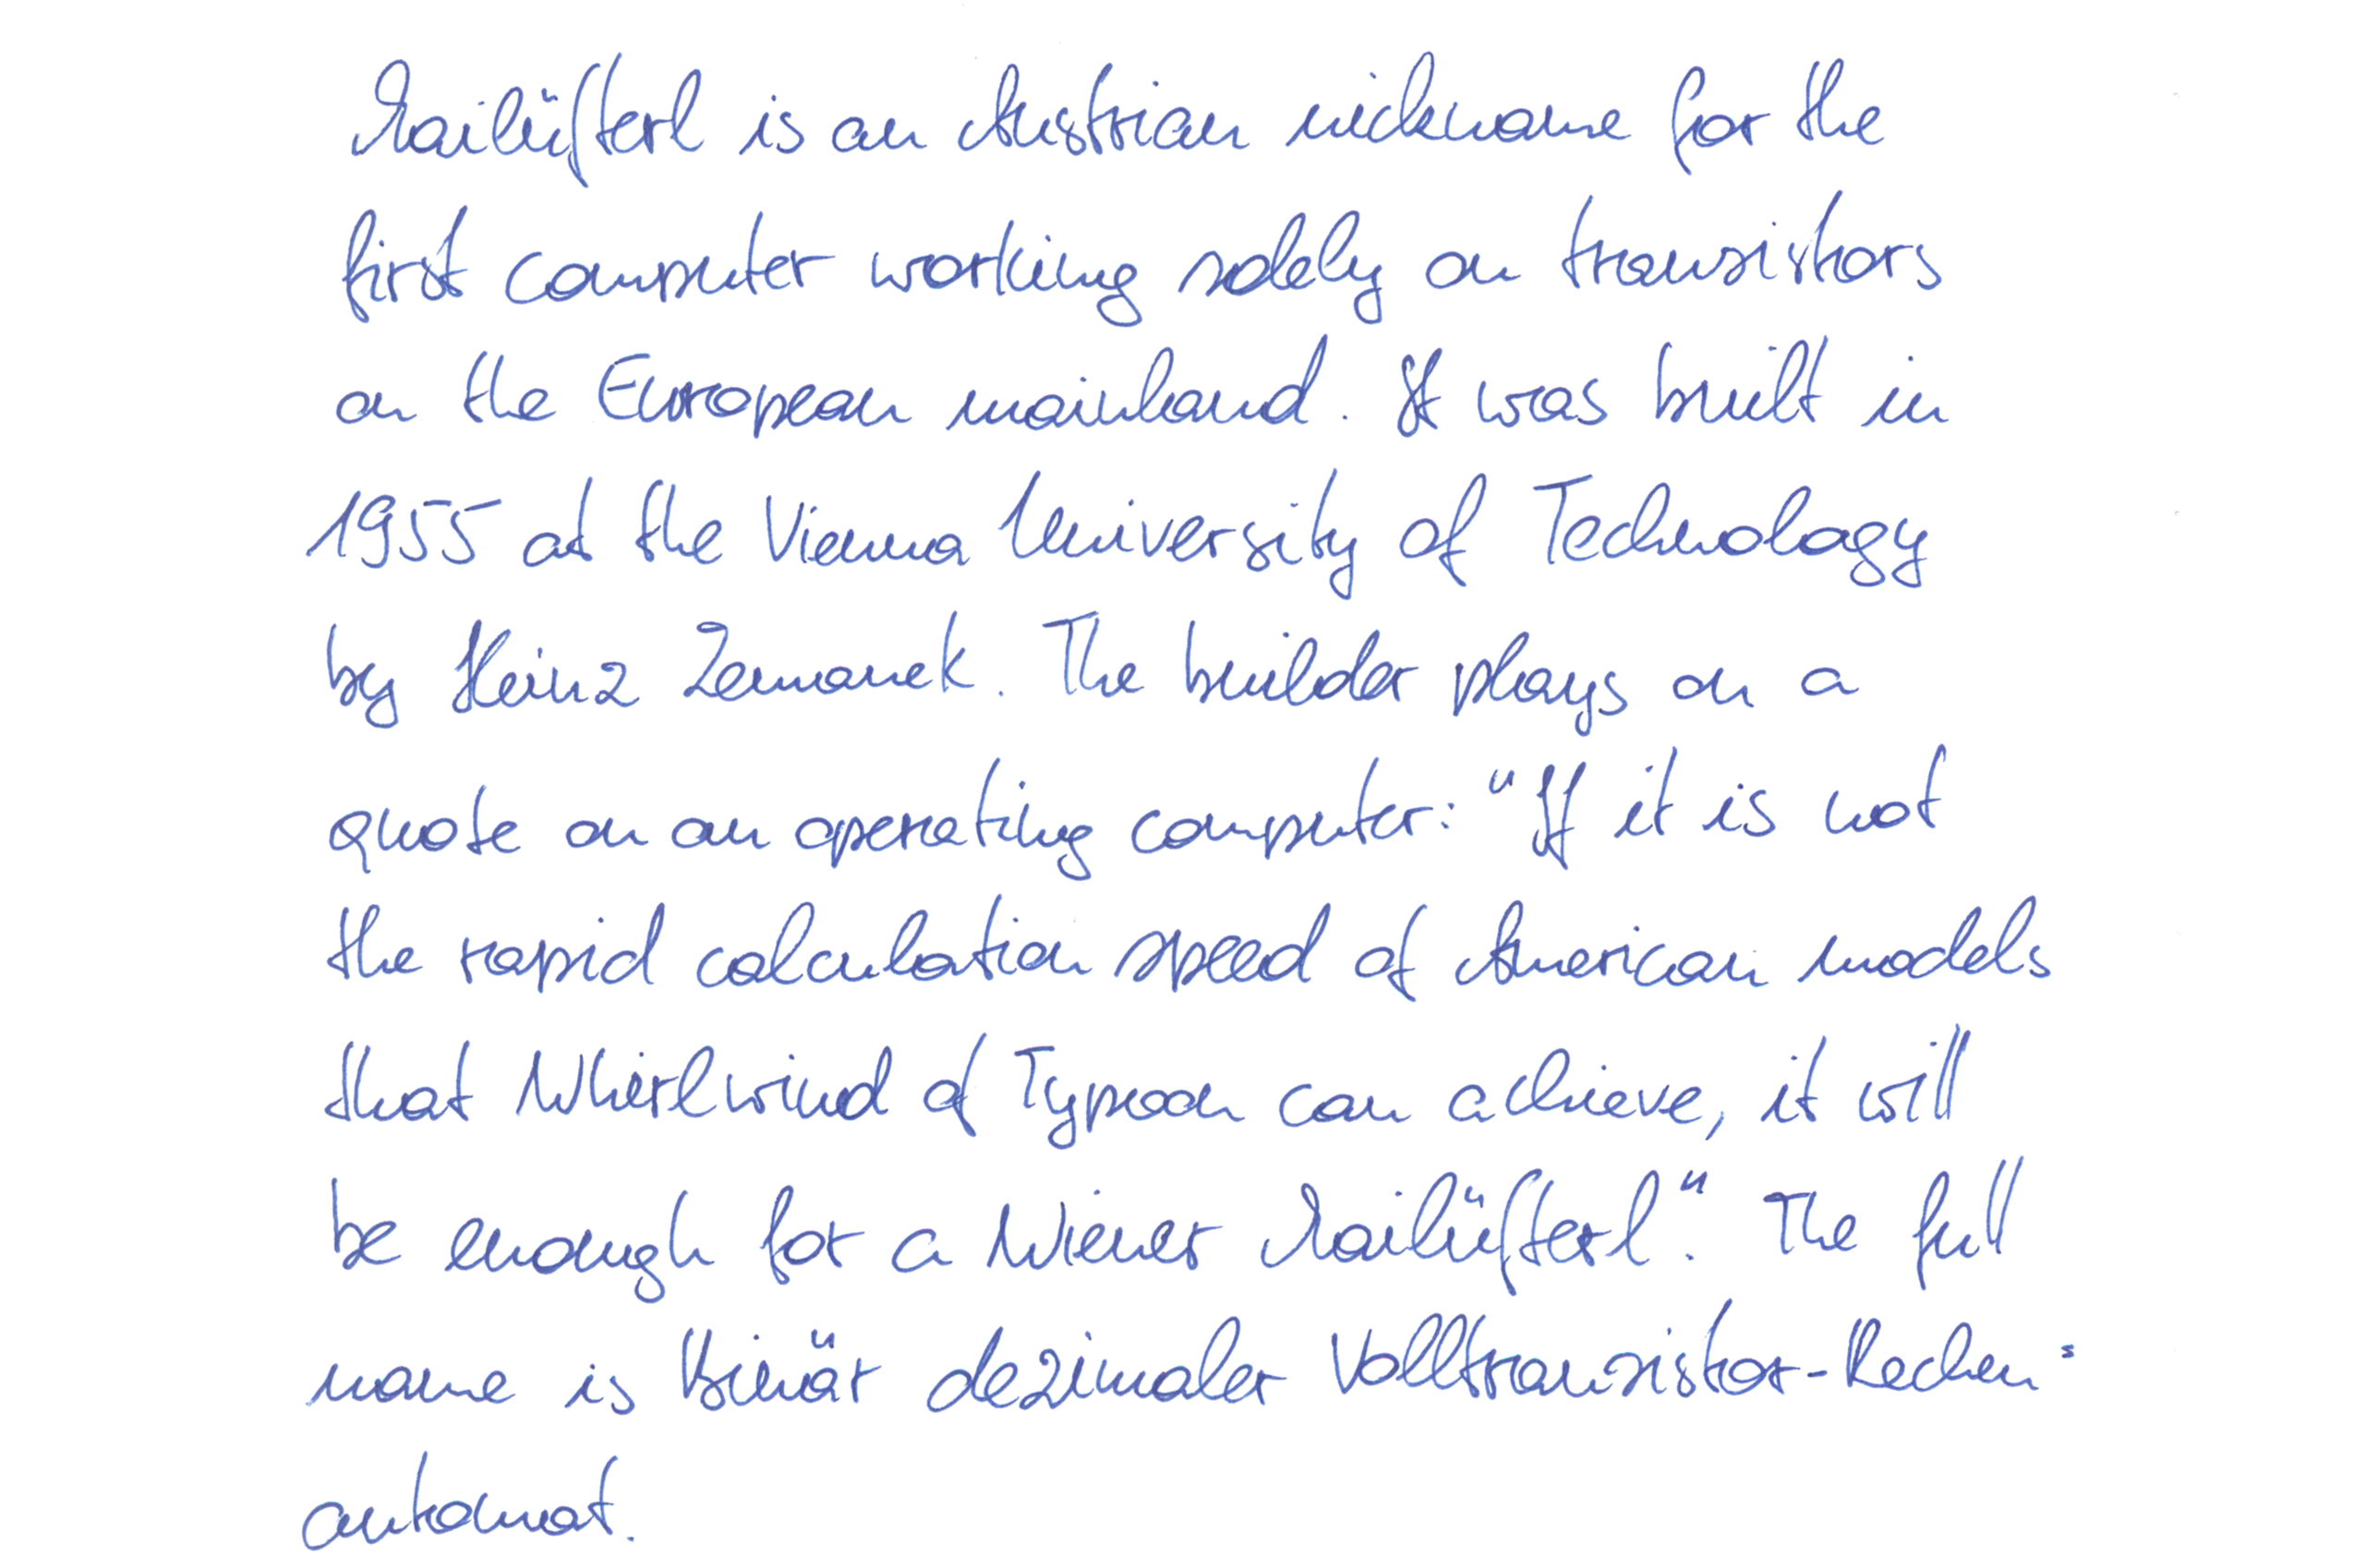 Mailüfterl is an Austrian nickname for the
first computer working solely on transistors
on the European mainland. It was built in
1955 at the Vienna University of Technology
by Heinz Zemanek. The builder plays on a
quote on an operating computer: "If it is not
the rapid calculation speed of American models
that Whirlwind of Typoon can achieve, it will
be enough for a Wiener Mailüfterl". The full
name is Binär dezimaler Volltransistor-Rechen=
automat.